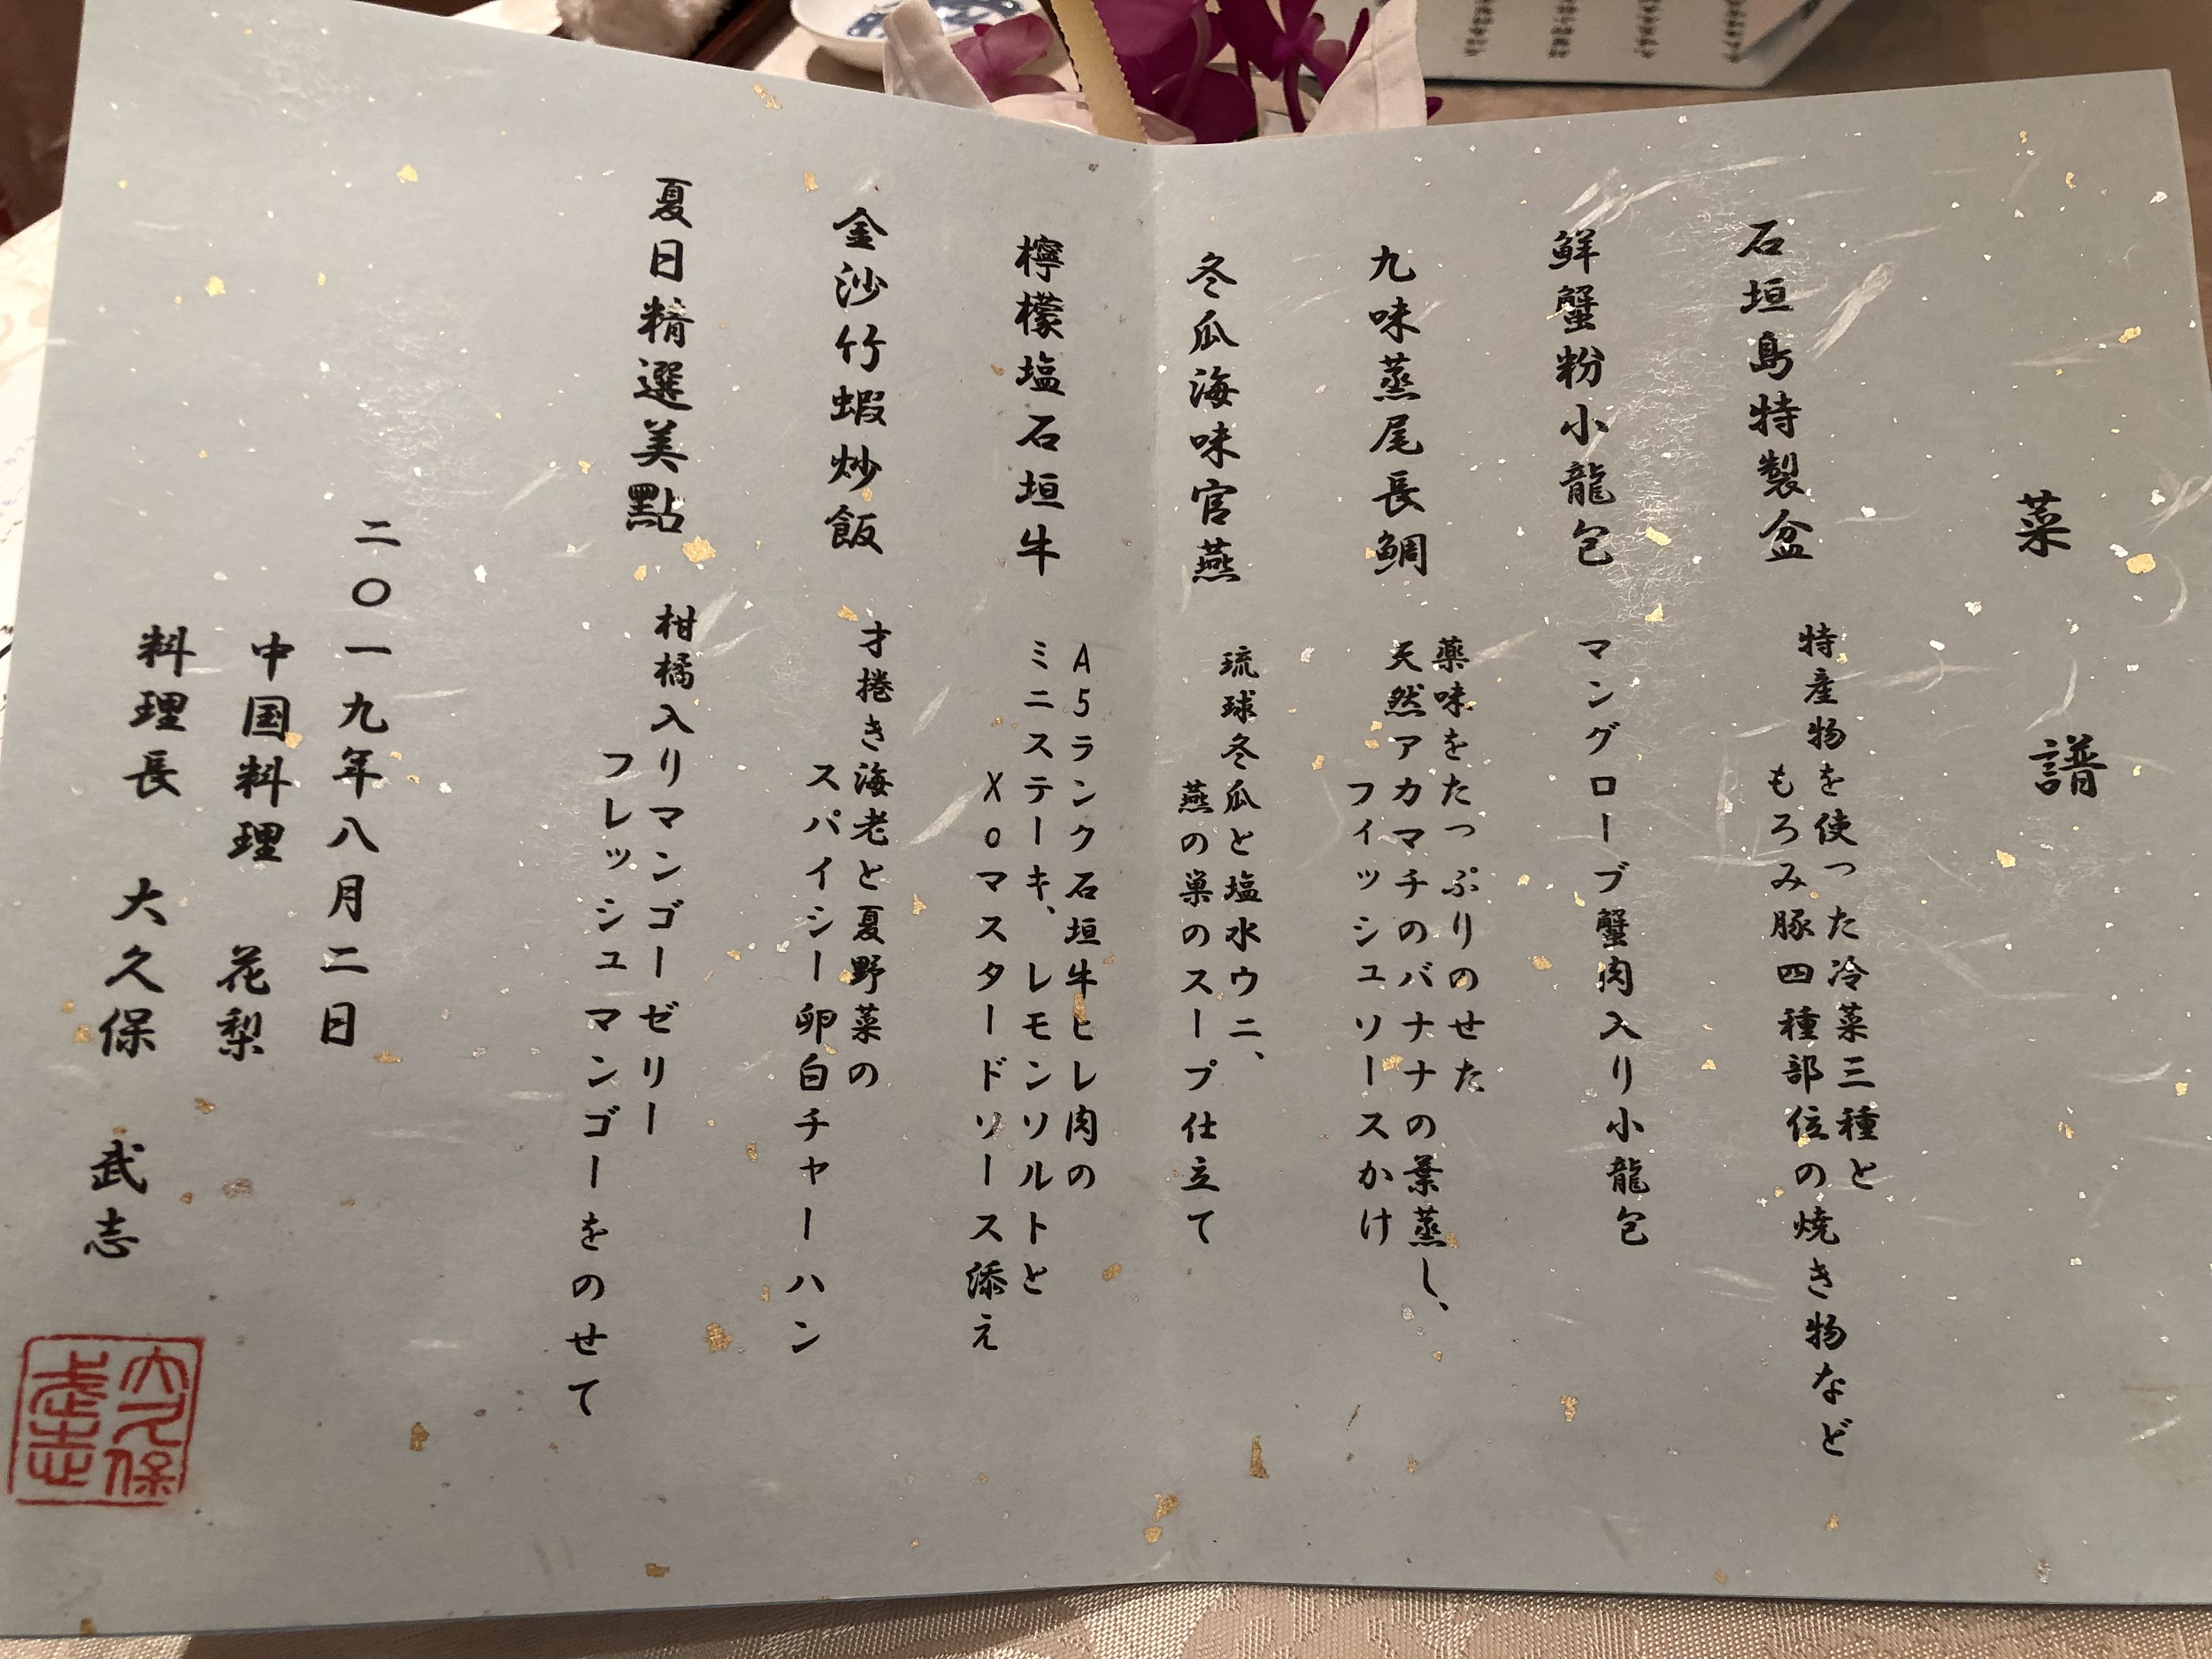 菜譜
石垣島特製盆
特産物を使った冷菜三種と
もろみ豚四種部位の焼き物など
鮮蟹粉小龍包
マングローブ蟹肉入り小龍包
九味蒸尾長鯛
薬味をたっぷりのせた
天然アカマチのバナナの葉蒸し、
フィッシュソースかけ
冬瓜海味官燕
琉球冬瓜と塩水ウニ、
燕の巣のスープ仕立て
檸檬塩石垣牛
A5ランク石垣牛ヒレ肉の
ミニステーキ、レモンソルトと
XOマスタードソース添え
金沙竹蝦炒飯
才捲き海老と夏野菜の
スパイシー卵白チャーハン
夏日精選美點
柑橘入りマンゴーゼリー
フレッシュマンゴーをのせて
二〇一九年八月二日
中国料理 花梨
料理長 大久保 武志
大久保
武志